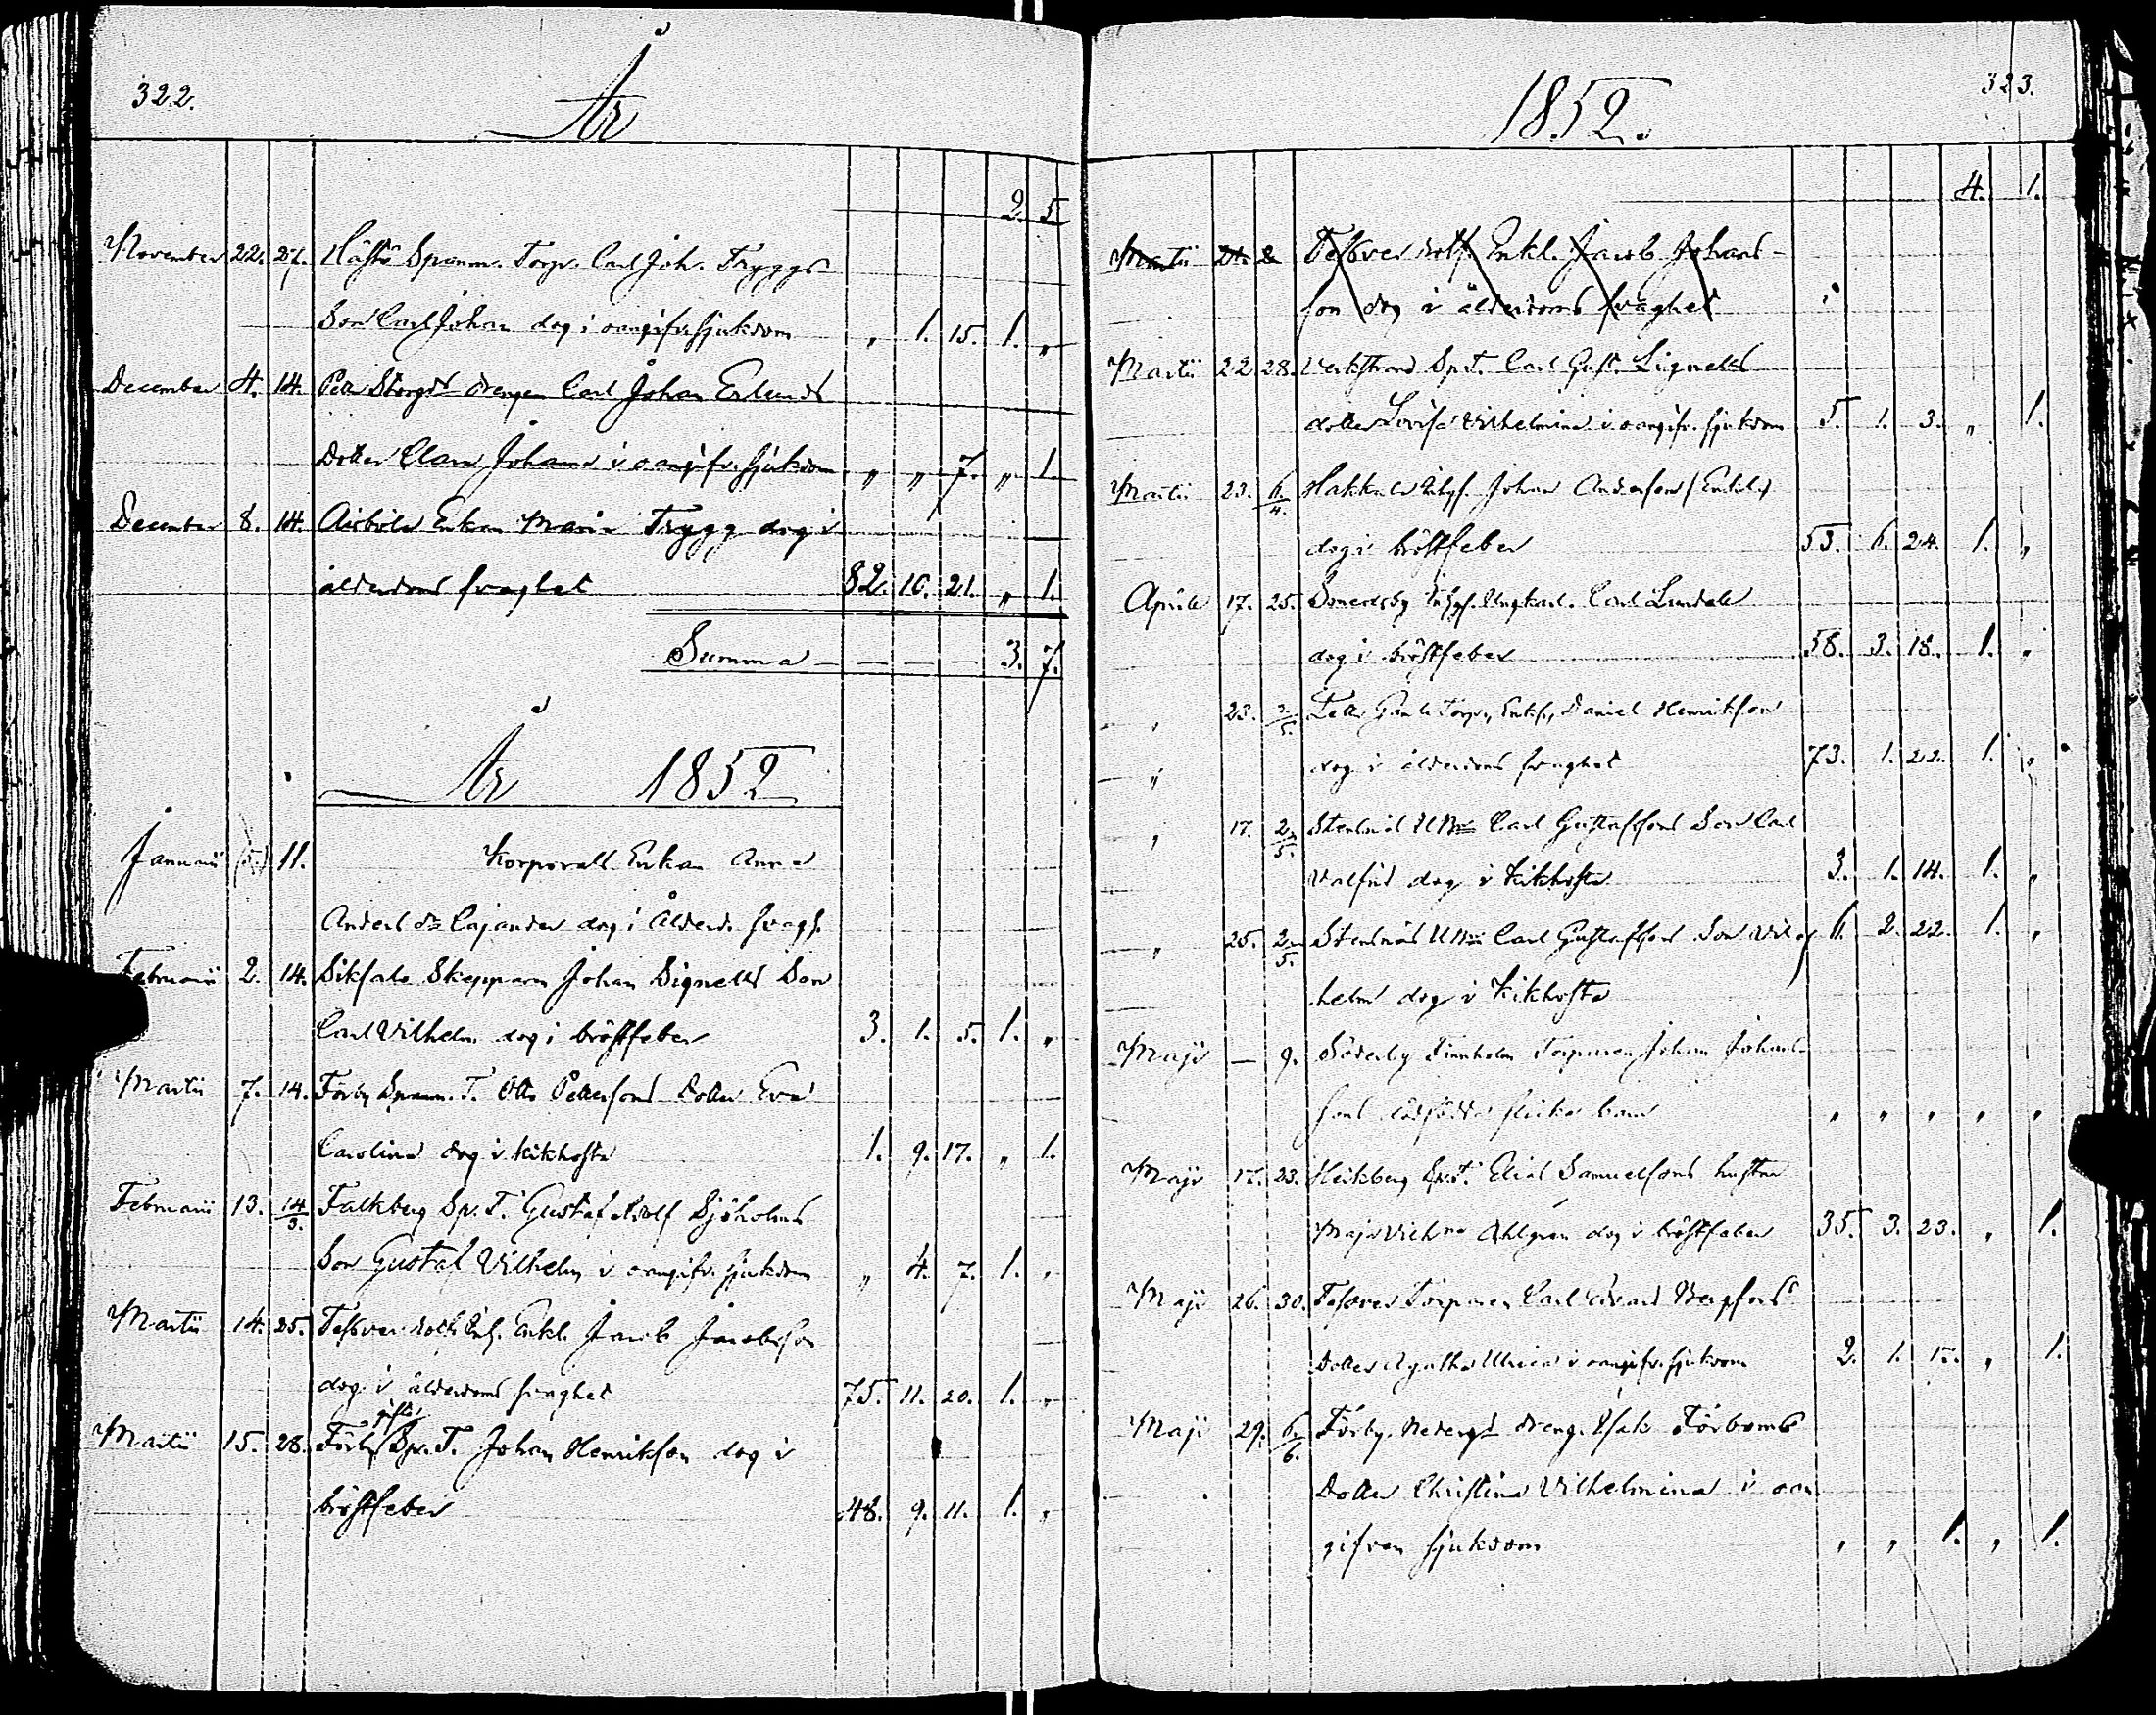 322.
År
2. 5.
November 22. 27. Hästö Spannm. Torp. Carl Joh. Tryggs
Son Carl Johan dog i oangifv. sjukdom „ 1. 15. 1. „
December 4. 14. drengen Carl Johan Erlunds
Dotter Clara Johanna i oangifv. sjukdom „ „ 7. „ 1.
December 8. 14. Enkan Maria Trygg dog i
ålderdoms svaghet 82. 10. 21. „ 1.
Summa — — — — 3. 7.
År 1852
Januarii (5.) 11. Korporals Enkan Anna
Anders dr Cajander dog i Ålderd. svagh.
Februarii 2. 14. Siksalo Skepparn Johan Signells Son
Carl Vilhelm dog i bröstfeber 3. 1. 5. 1. „
Martii 7. 14. Förby Spannm. T. Otto Pettersons Dotter Eva
Carolina dog i kikhosta 1. 9. 17. „ 1.
Februarii 13. 14/3. Falkberg Sp. T. Gustaf Adolf Sjöholms
Son Gustaf Vilhelm i oangifv. sjukdom „ 4. 7. 1. „
Martii 14. 25. Enkl. Jacob Jacobsson
dog i ålderdoms svaghet 75. 11. 20. 1. „
gifte
Martii 15. 28. Förby Sp. T. Johan Henrikson dog i
bröstfeber 48. 9. 11. 1. „
1852.
323.
4. 1.
Martii Enkl. Jacob Johans-
son dog i ålderdoms svaghet
Martii 22 28. Verkstrand Sp. T. Carl Gust. Lignells
dotter Lovisa Vilhelmina i oangifv. sjukdom 5. 1. 3. „ 1.
Martii 23. 6/4. Johan Anderson (Enkl.)
dog i bröstfeber 53. 6. 24. 1. „
Aprile 17. 25. Inhys. Ungkarl. Carl Lindell
dog i bröstfeber 58. 3. 18. 1. „
„ 23. 2/5. Torp. Daniel Henrikson
„ dog i ålderdoms svaghet 73. 1. 22. 1. „
„ 17. 2/5. Carl Gustafssons Son Carl
Valfrid dog i Kikhosta 3. 1. 14. 1. „
„ 25. 2/5. Carl Gustafssons Son Vil- 6. 2. 22. 1. „
helm dog i Kikhosta
Maji — 9. Söderby Finnholm Torparen Johan Johans-
sons dödfödda flicka barn „ „ „ „ „
Maji 17. 23. Heikberg Sp. T. Elias Samuelsons hustru
Maja Vich Ahlgren dog i bröstfeber 35. 3. 23. „ 1.
Maji 26. 30. Torparen Carl Edvard
Dotter Agatha Ulrica i oangifv. sjukdom 2. 1. 17. „ 1.
Maji 29. 6/6. Förby dreng. Isak Förboms
Dotter Christina Vilhelmina i oan
gifven sjukdom „ „ 1. „ 1.